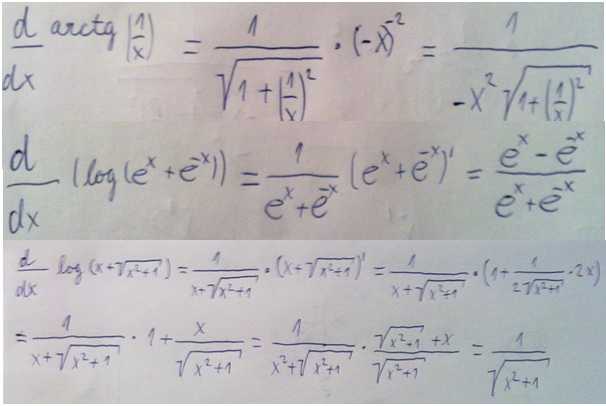 d/dx arctg (1/x) = 1/√(1+(1/x)²) · (-x)⁻² = 1/(-x²√(1+(1/x)²))
d/dx (log(eˣ+e⁻ˣ)) = 1/(eˣ+e⁻ˣ) (eˣ+e⁻ˣ)' = (eˣ-e⁻ˣ)/(eˣ+e⁻ˣ)
d/dx log(x+√(x²+1)) = 1/(x+√(x²+1)) · (x+√(x²+1))' = 1/(x+√(x²+1)) · (1+1/(2√(x²+1)) · 2x)
= 1/(x+√(x²+1)) · 1 + x/√(x²+1) = 1/(x²+√(x²+1)) · (√(x²+1)+x)/√(x²+1) = 1/√(x²+1)